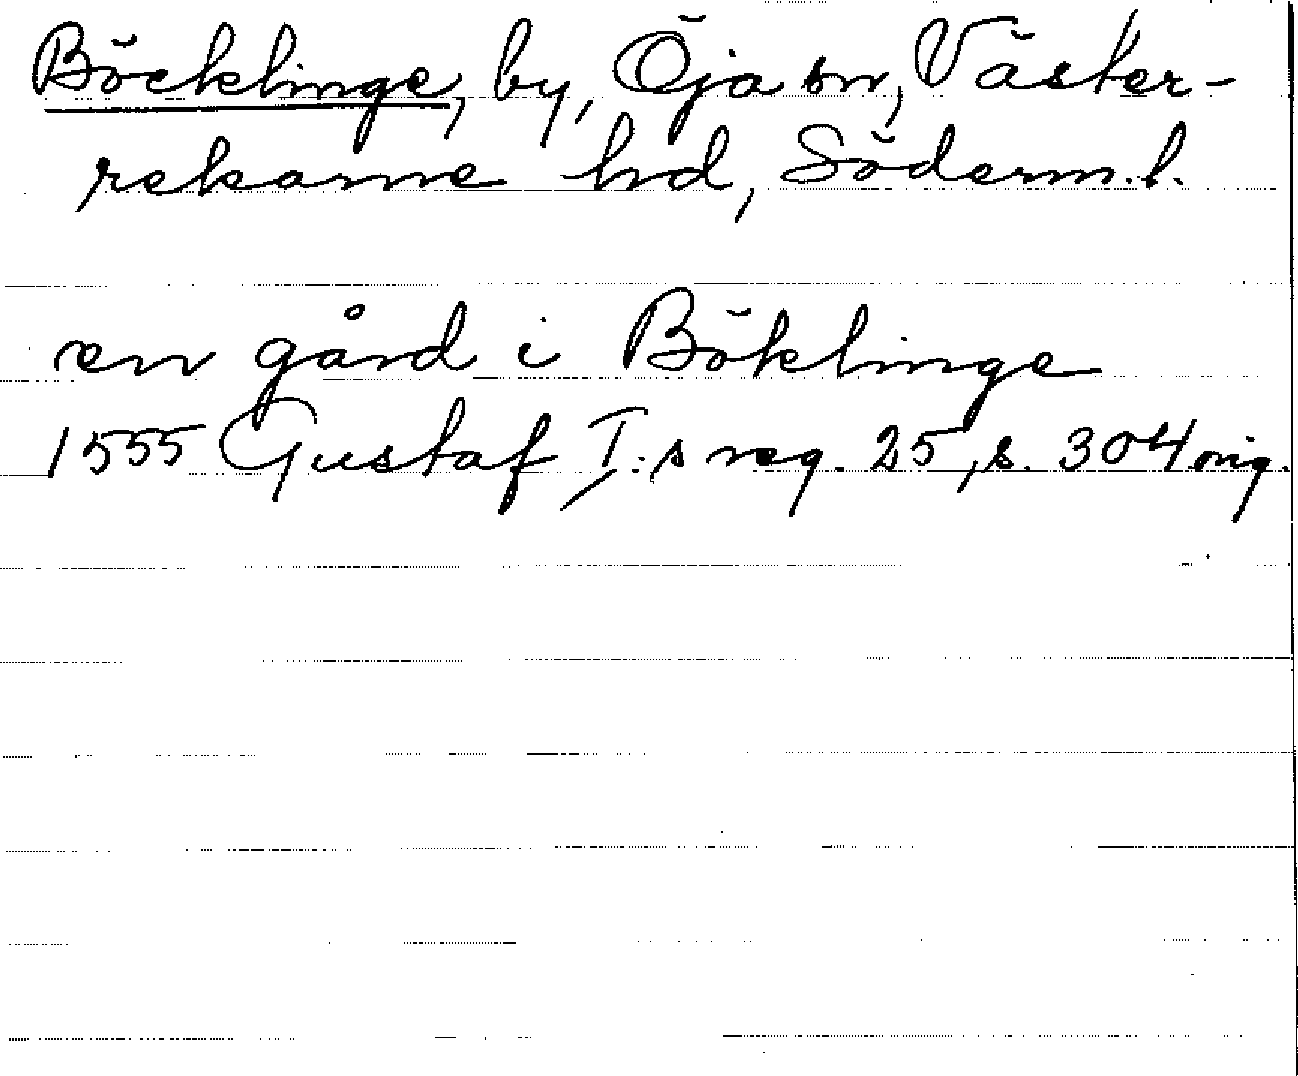 Böcklinge, by, Öja sn, Väster-
rekarne hd, Söderm. l.
en gård i Böklinge
1555 Gustaf I:s reg. 25, s. 304 orig.